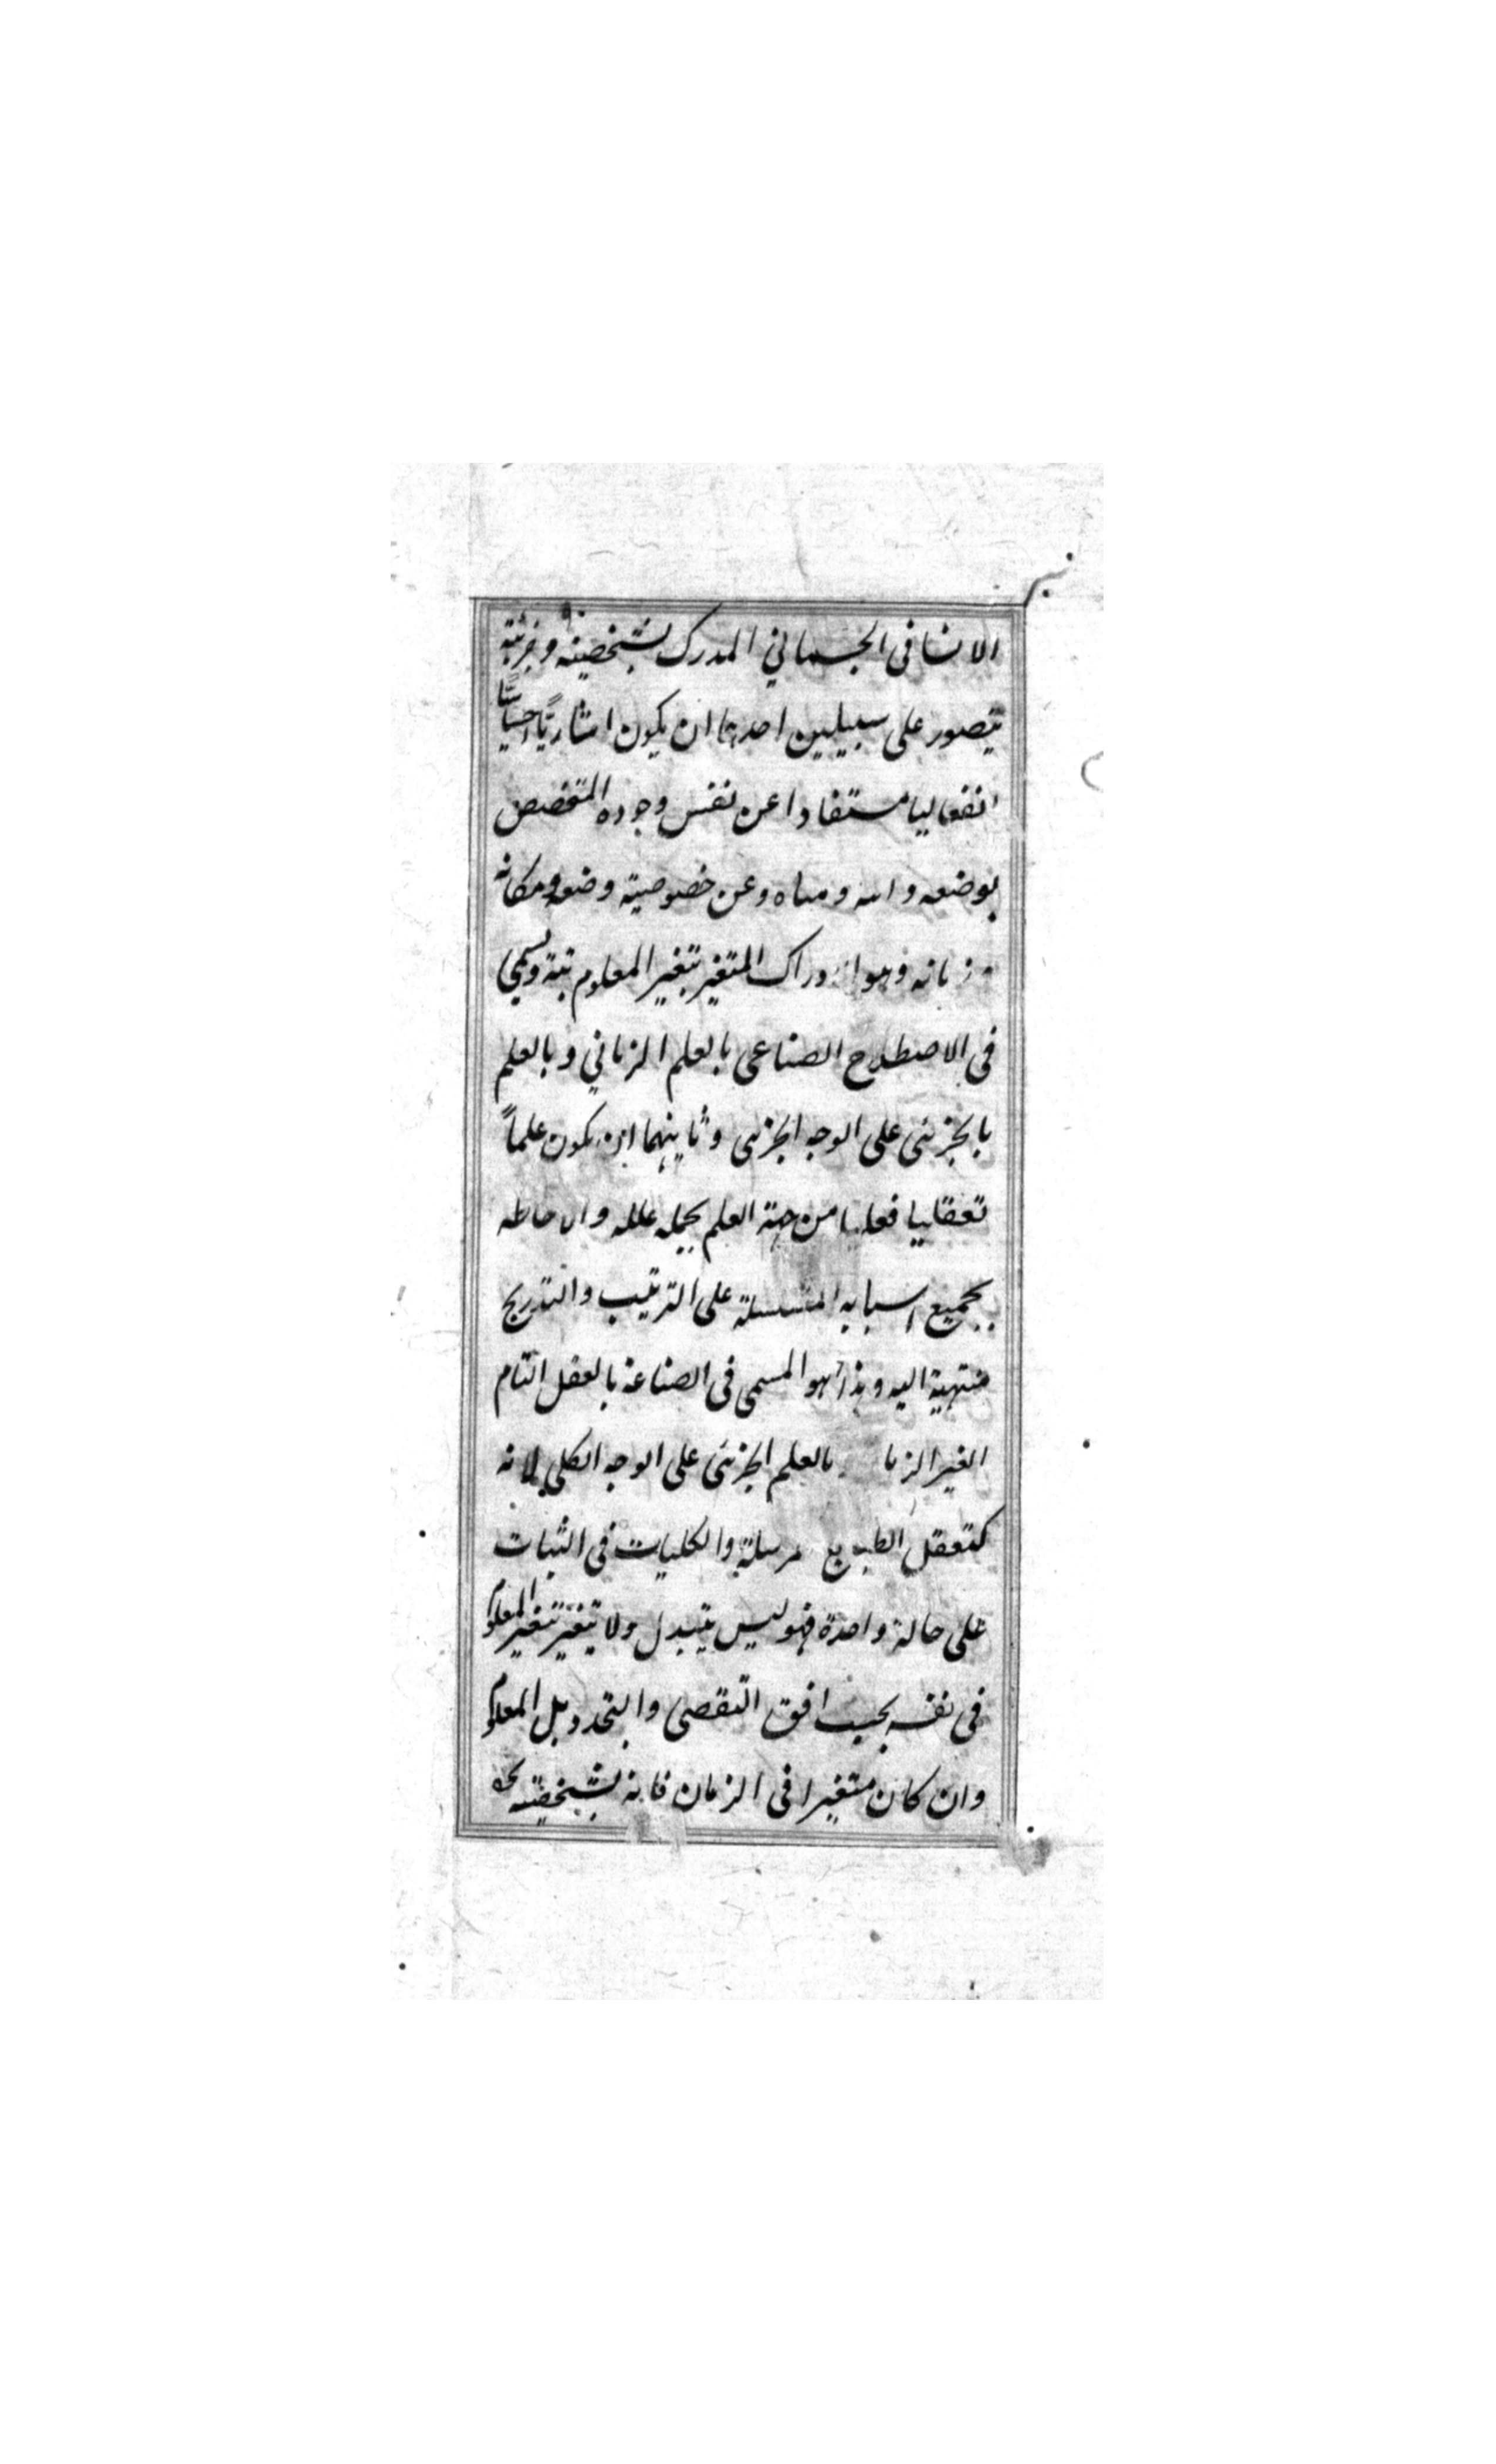 الانسانى الجسمانى المدرك بشخصيته وجزئيته
يتصور على سبيلين احدهما ان يكون اشاريًا احساسيًّا
انفعاليا مستفادا عن نفس وجوده المتخصص
بوضعه واينه ومتاه وعن خصوصية وضعه ومكانه
زمانه وهو الادراك المتغير بتغير المعلوم بتة ويسمى
فى الاصطلاح الصناعى بالعلم الزمانى وبالعلم
بالجزئى على الوجه الجزئى وثانيهما ان يكون علماً
تعقليا فعليا من جهة العلم بجملة علله والاحاطه
بجميع اسبابه المتسلسلة على الترتيب والتدريج
منتهية اليه وهذا هو المسمى فى الصناعة بالعقل التام
الغير الزما بالعلم الجزئى على الوجه الكلى لانه
كتعقل الطبايع مرسلة والكليات فى الثبات
على حالة واحدة فهو ليس يتبدل ولا يتغير بتغير المعلوم
فى نفسه بحسب افق التقضى والتجدد بل المعلوم
وان كان متغيرا فى الزمان فانه بشخصيته